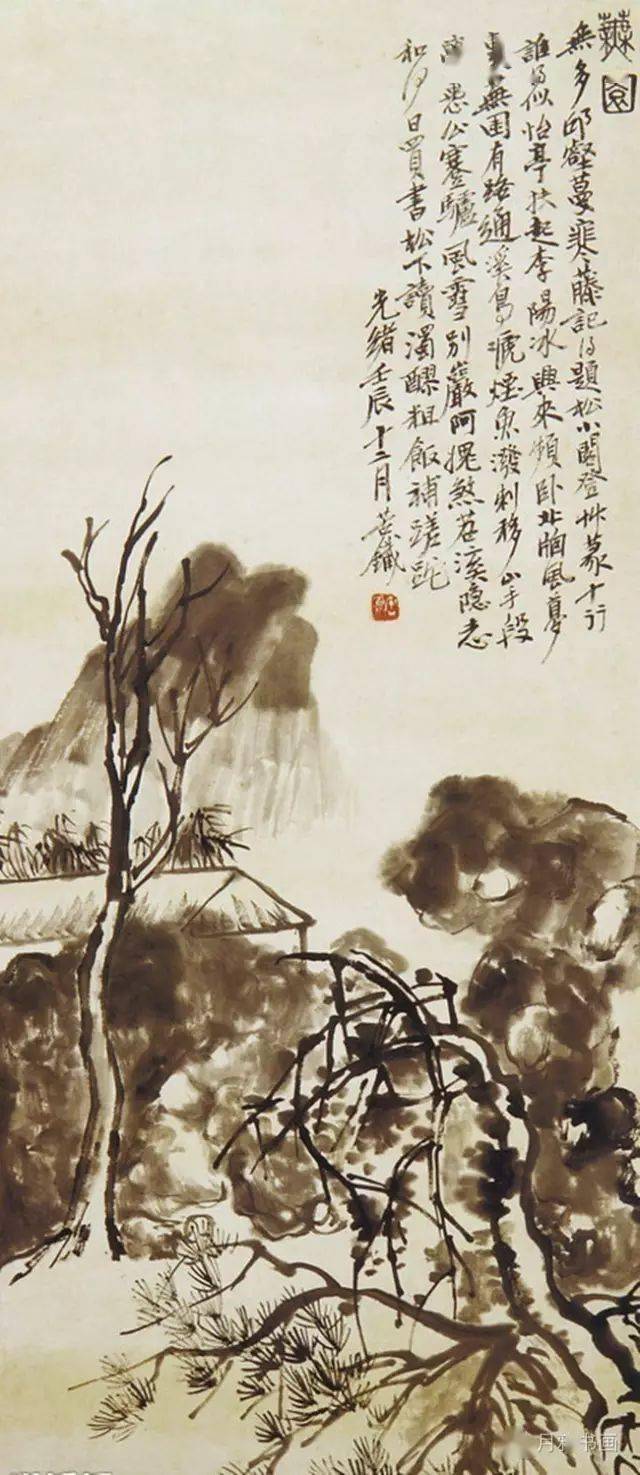 蕪園
無多邱壑蔓寒藤記得題松小閣登艸篆十行
誰得似怡亭扶起李陽冰興來頻臥北牕風夢
裏蕪園有路通溪鳥號煙魚潑刺移山手段
悉公蹇驢風雪別巖阿愧煞苕溪隱志
和何日買書松下讀濁醪粗飯補蹉跎
光緒壬辰十二月苦鐵
月雅书画